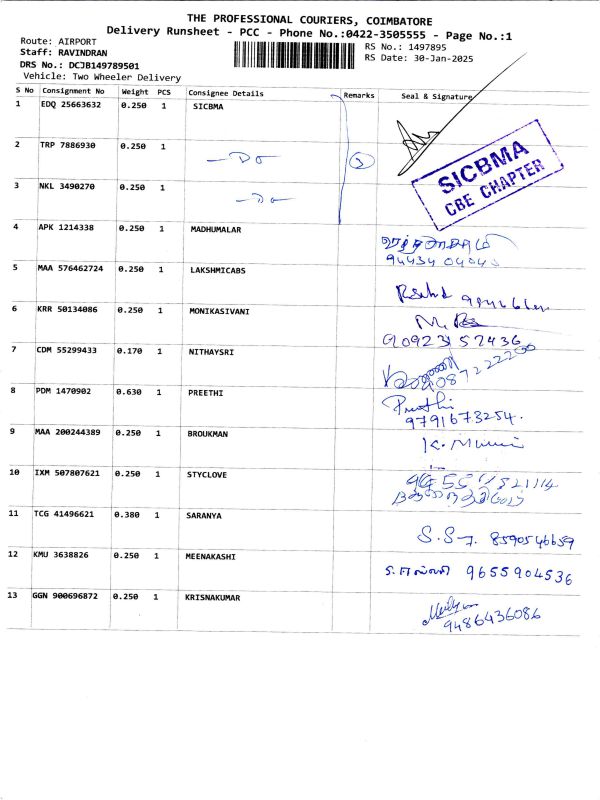 THE PROFESSIONAL COURIERS, COIMBATORE
Delivery Runsheet - PCC - Phone No.:0422-3505555 - Page No.:1
Route: AIRPORT
RS No.: 1497895
Staff: RAVINDRAN
RS Date: 30-Jan-2025
DRS No.: DCJB149789501
Vehicle: Two Wheeler Delivery
S No Consignment No Weight PCS Consignee Details Remarks Seal & Signature
1 EDQ 25663632 0.250 1 SICBMA
SICBMA
CBE CHAPTER
2 TRP 7886930 0.250 1 -Do- 3
3 NKL 3490270 0.250 1 -Do-
4 APK 1214338 0.250 1 MADHUMALAR
94434 04040
5 MAA 576462724 0.250 1 LAKSHMICABS
6 KRR 50134086 0.250 1 MONIKASIVANI
9092357436
7 CDM 55299433 0.170 1 NITHAYSRI
9087222200
8 PDM 1470902 0.630 1 PREETHI Preethi
9791673254.
9 MAA 200244389 0.250 1 BROUKMAN K.
10 IXM 507807621 0.250 1 STYCLOVE
11 TCG 41496621 0.380 1 SARANYA
8590546659
12 KMU 3638826 0.250 1 MEENAKASHI
9655904536
13 GGN 900696872 0.250 1 KRISNAKUMAR
9486436086